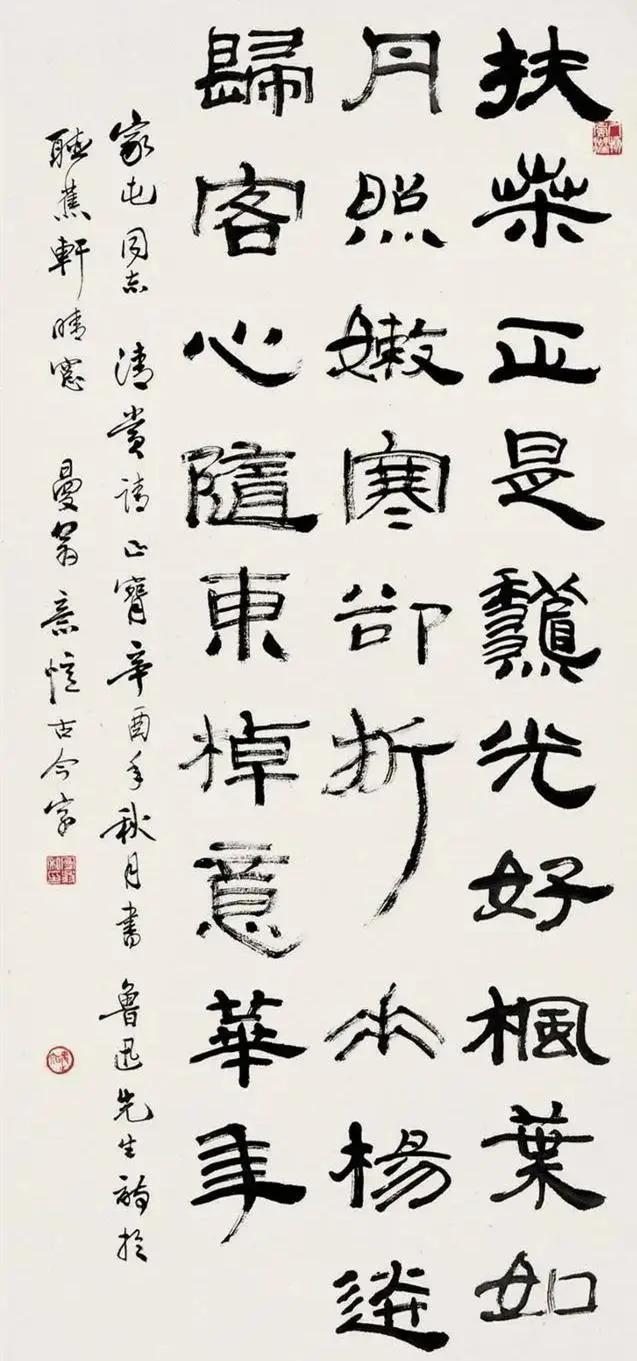 扶桒正是龝光好楓葉如
丹照嫩寒卻折垂楊送
歸客心隨東棹意華年
家屯同志 清賞請正 辛酉年秋月書 魯迅先生詩於
聽蕉軒晴窗 曼翁 意憶古今字